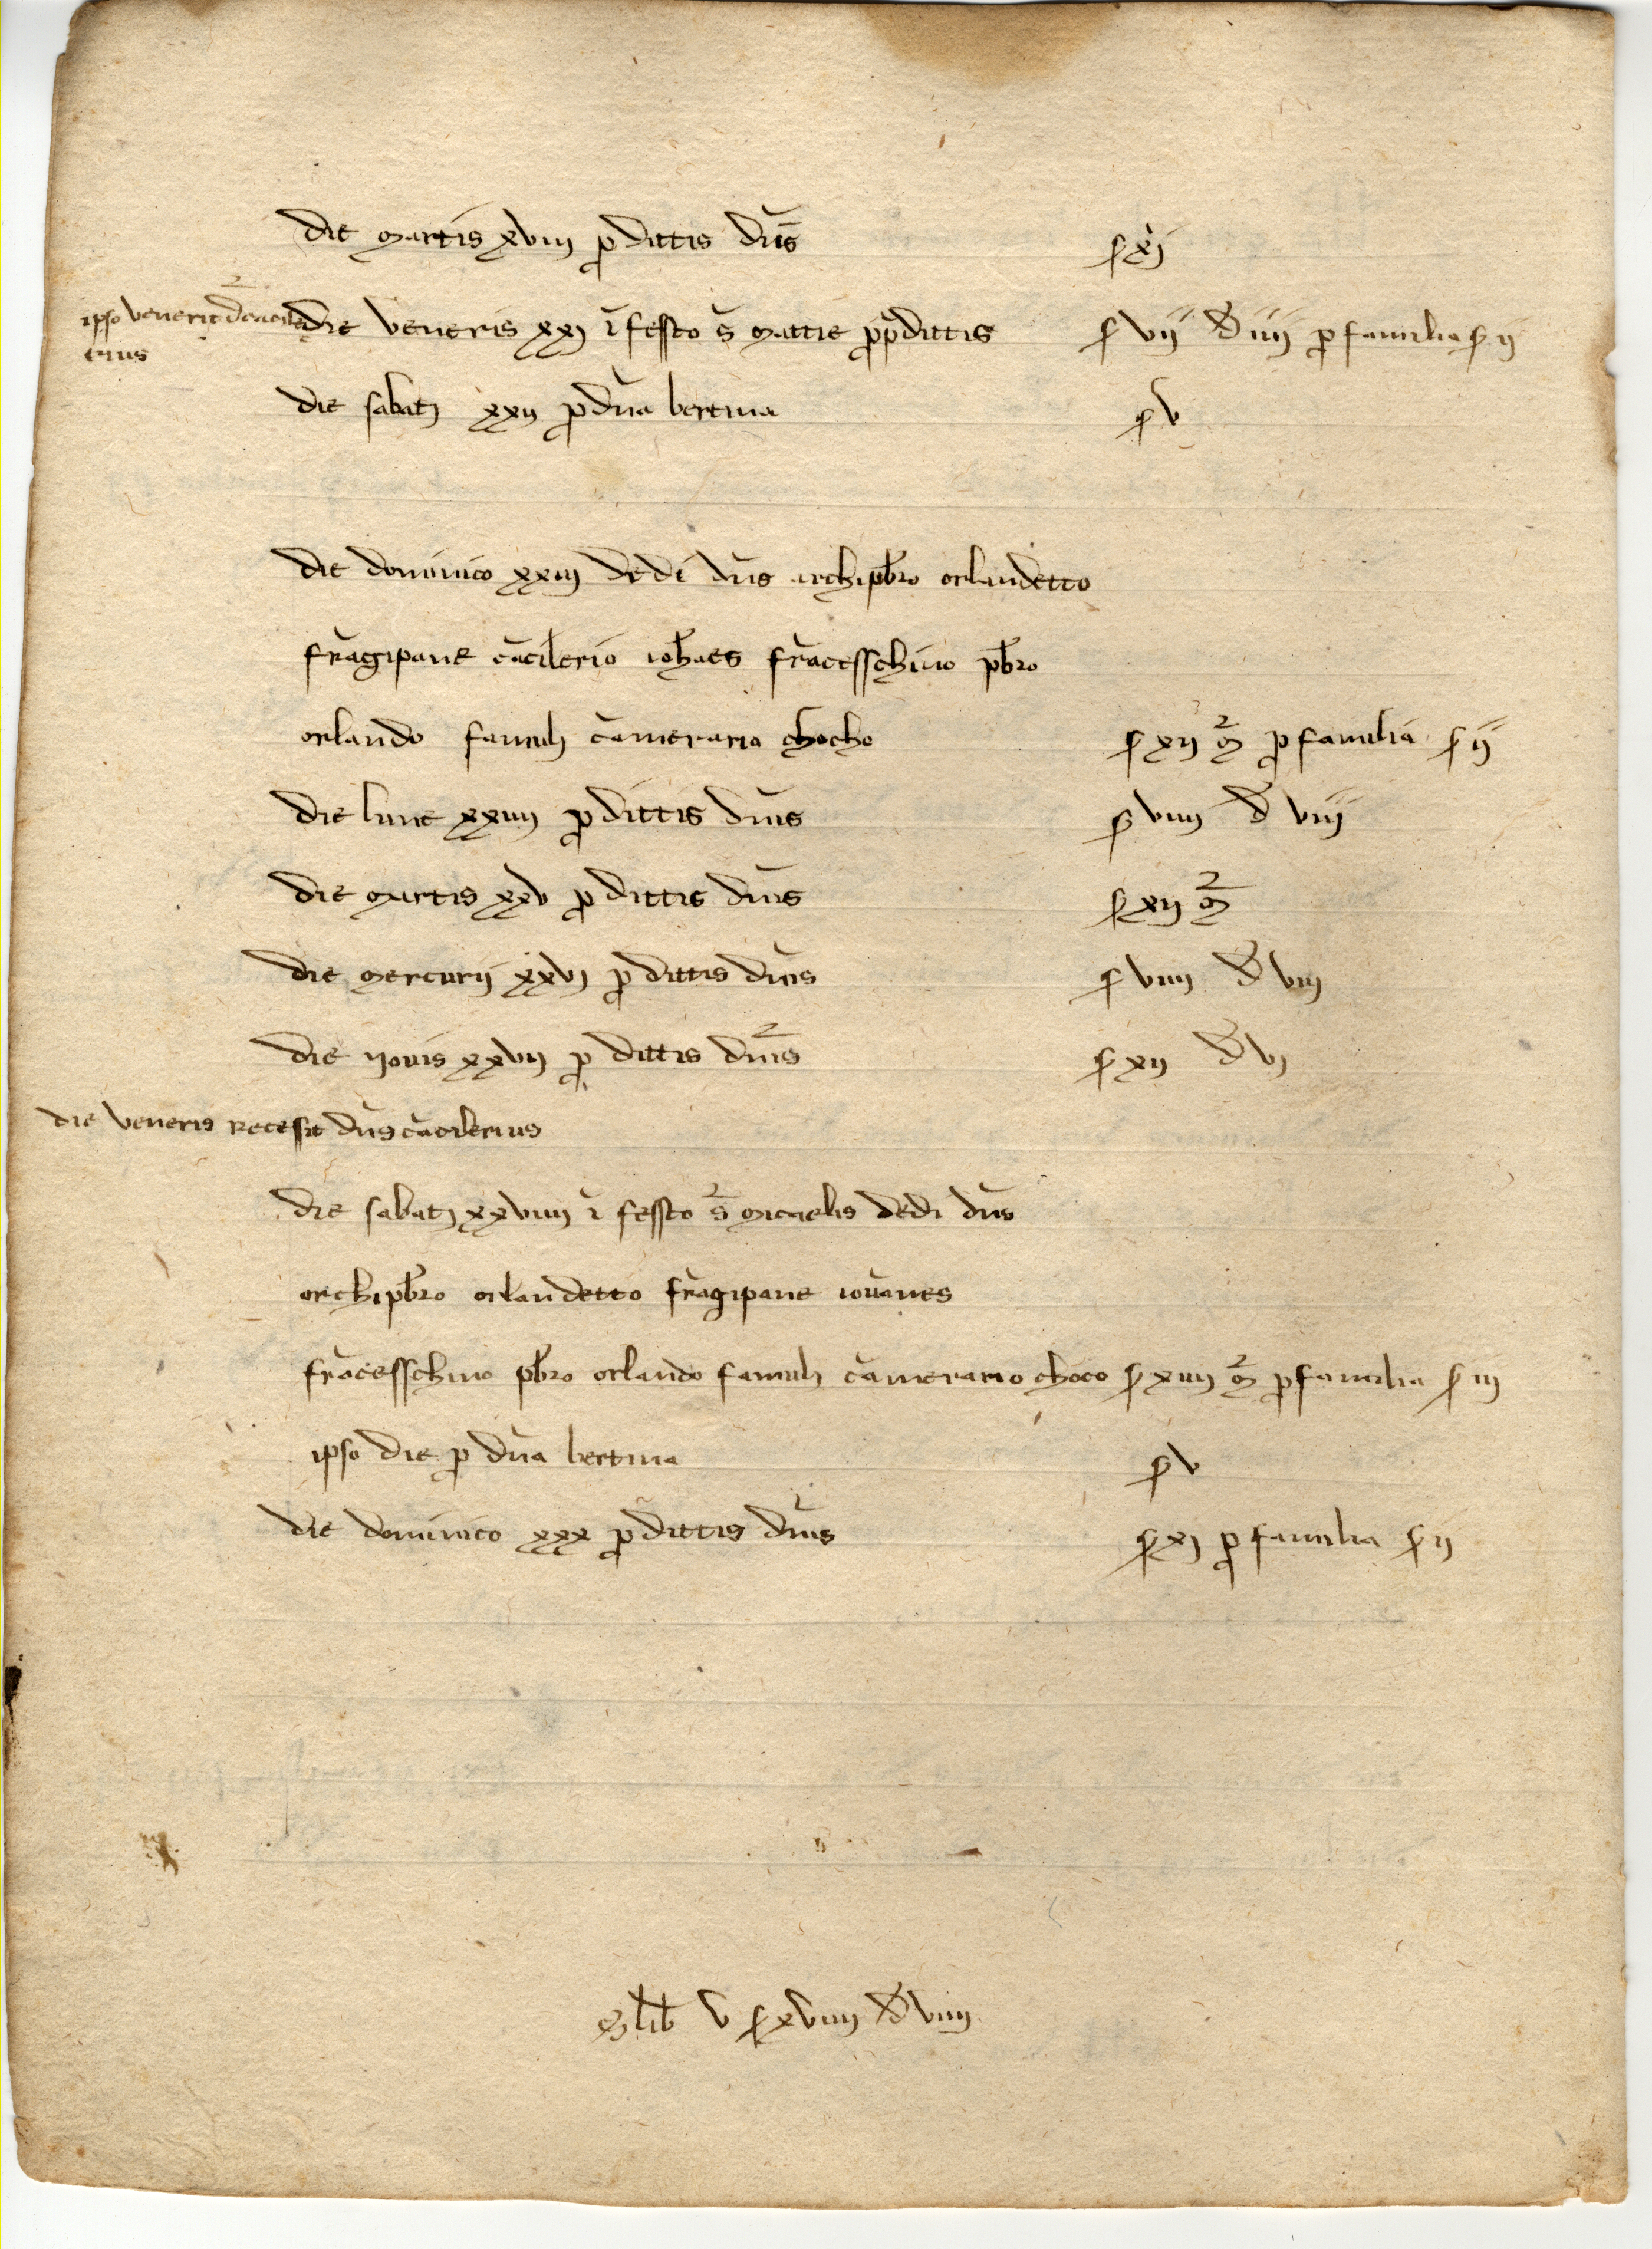 die martis xviii p dittis dn̄s s xi
ipso venerit d cācile
rius
die veneris xxi ī festo s̄ mattie p p dittis s vii d iiii p familia s ii
die sabati xxii p dn̄a bertina s v
die dominico xxiii dedi dn̄s archipb̄ro orlandetto
frāgipane cācilerio ioh̄aes frācesschino pb̄ro
orlando famuli cāmerario chocho s xii m̄ p familia s ii
die lune xxiiii p dittis dn̄is s viiii d viii
die martis xxv p dittis dn̄is s xii m̄
die mercurii xxvi p dittis dn̄is s viiii d viii
die yovis xxvii p dittis dn̄is s xii d vi
die veneris recessit dn̄s cācilerius
die sabati xxviiii ī festo s̄ micaelis dedi dn̄s
archipb̄ro orlandetto frāgipane iovānes
frācesschino pb̄ro orlando famuli cāmerario choco s xiiii m̄ p familia s iii
ipso die p dn̄a bertina s v
die dominico xxx p dittis dn̄is s xi p familia s ii
lib̄ v s xviiii d viiii